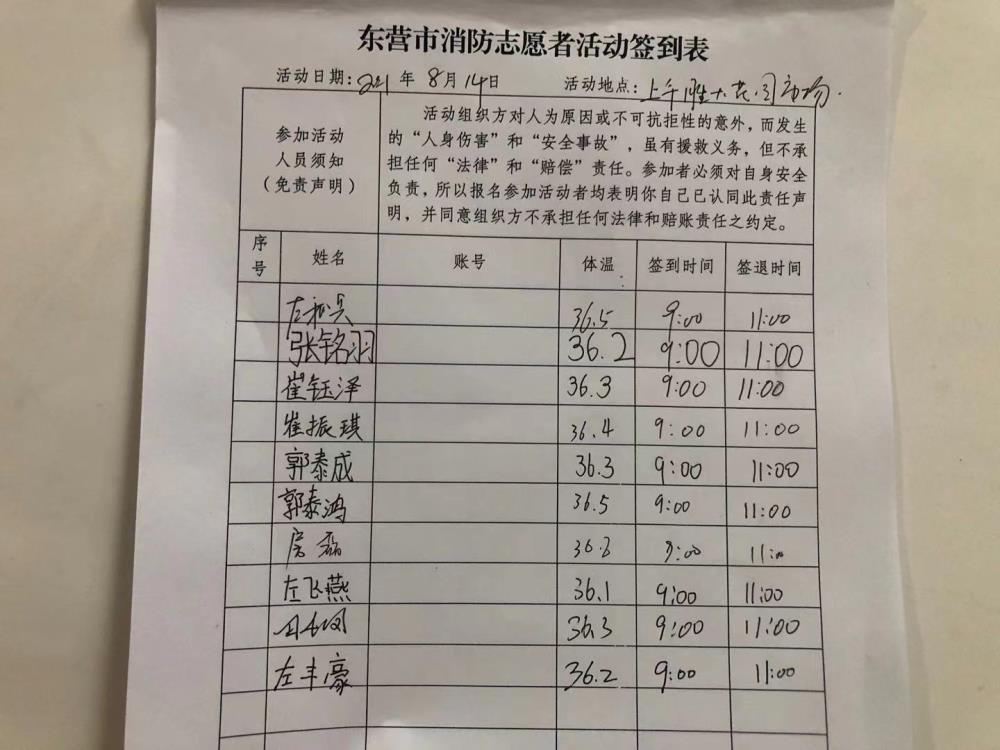 东营市消防志愿者活动签到表
活动日期: 2021 年 8 月 14 日 活动地点: 上午
参加活动
人员须知
(免责声明)
活动组织方对人为原因或不可抗拒性的意外,而发生
的“人身伤害”和“安全事故”,虽有援救义务,但不承
担任何“法律”和“赔偿”责任。参加者必须对自身安全
负责,所以报名参加活动者均表明你自己已认同此责任声
明,并同意组织方不承担任何法律和赔账责任之约定。
序号 姓名 账号 体温 签到时间 签退时间
36.5 9:00 11:00
张铭羽 36.2 9:00 11:00
崔钰泽 36.3 9:00 11:00
崔振琪 36.4 9:00 11:00
郭泰成 36.3 9:00 11:00
郭泰鸿 36.5 9:00 11:00
房磊 9:00 11:00
左飞燕 36.1 9:00 11:00
36.3 9:00 11:00
左丰豪 36.2 9:00 11:00